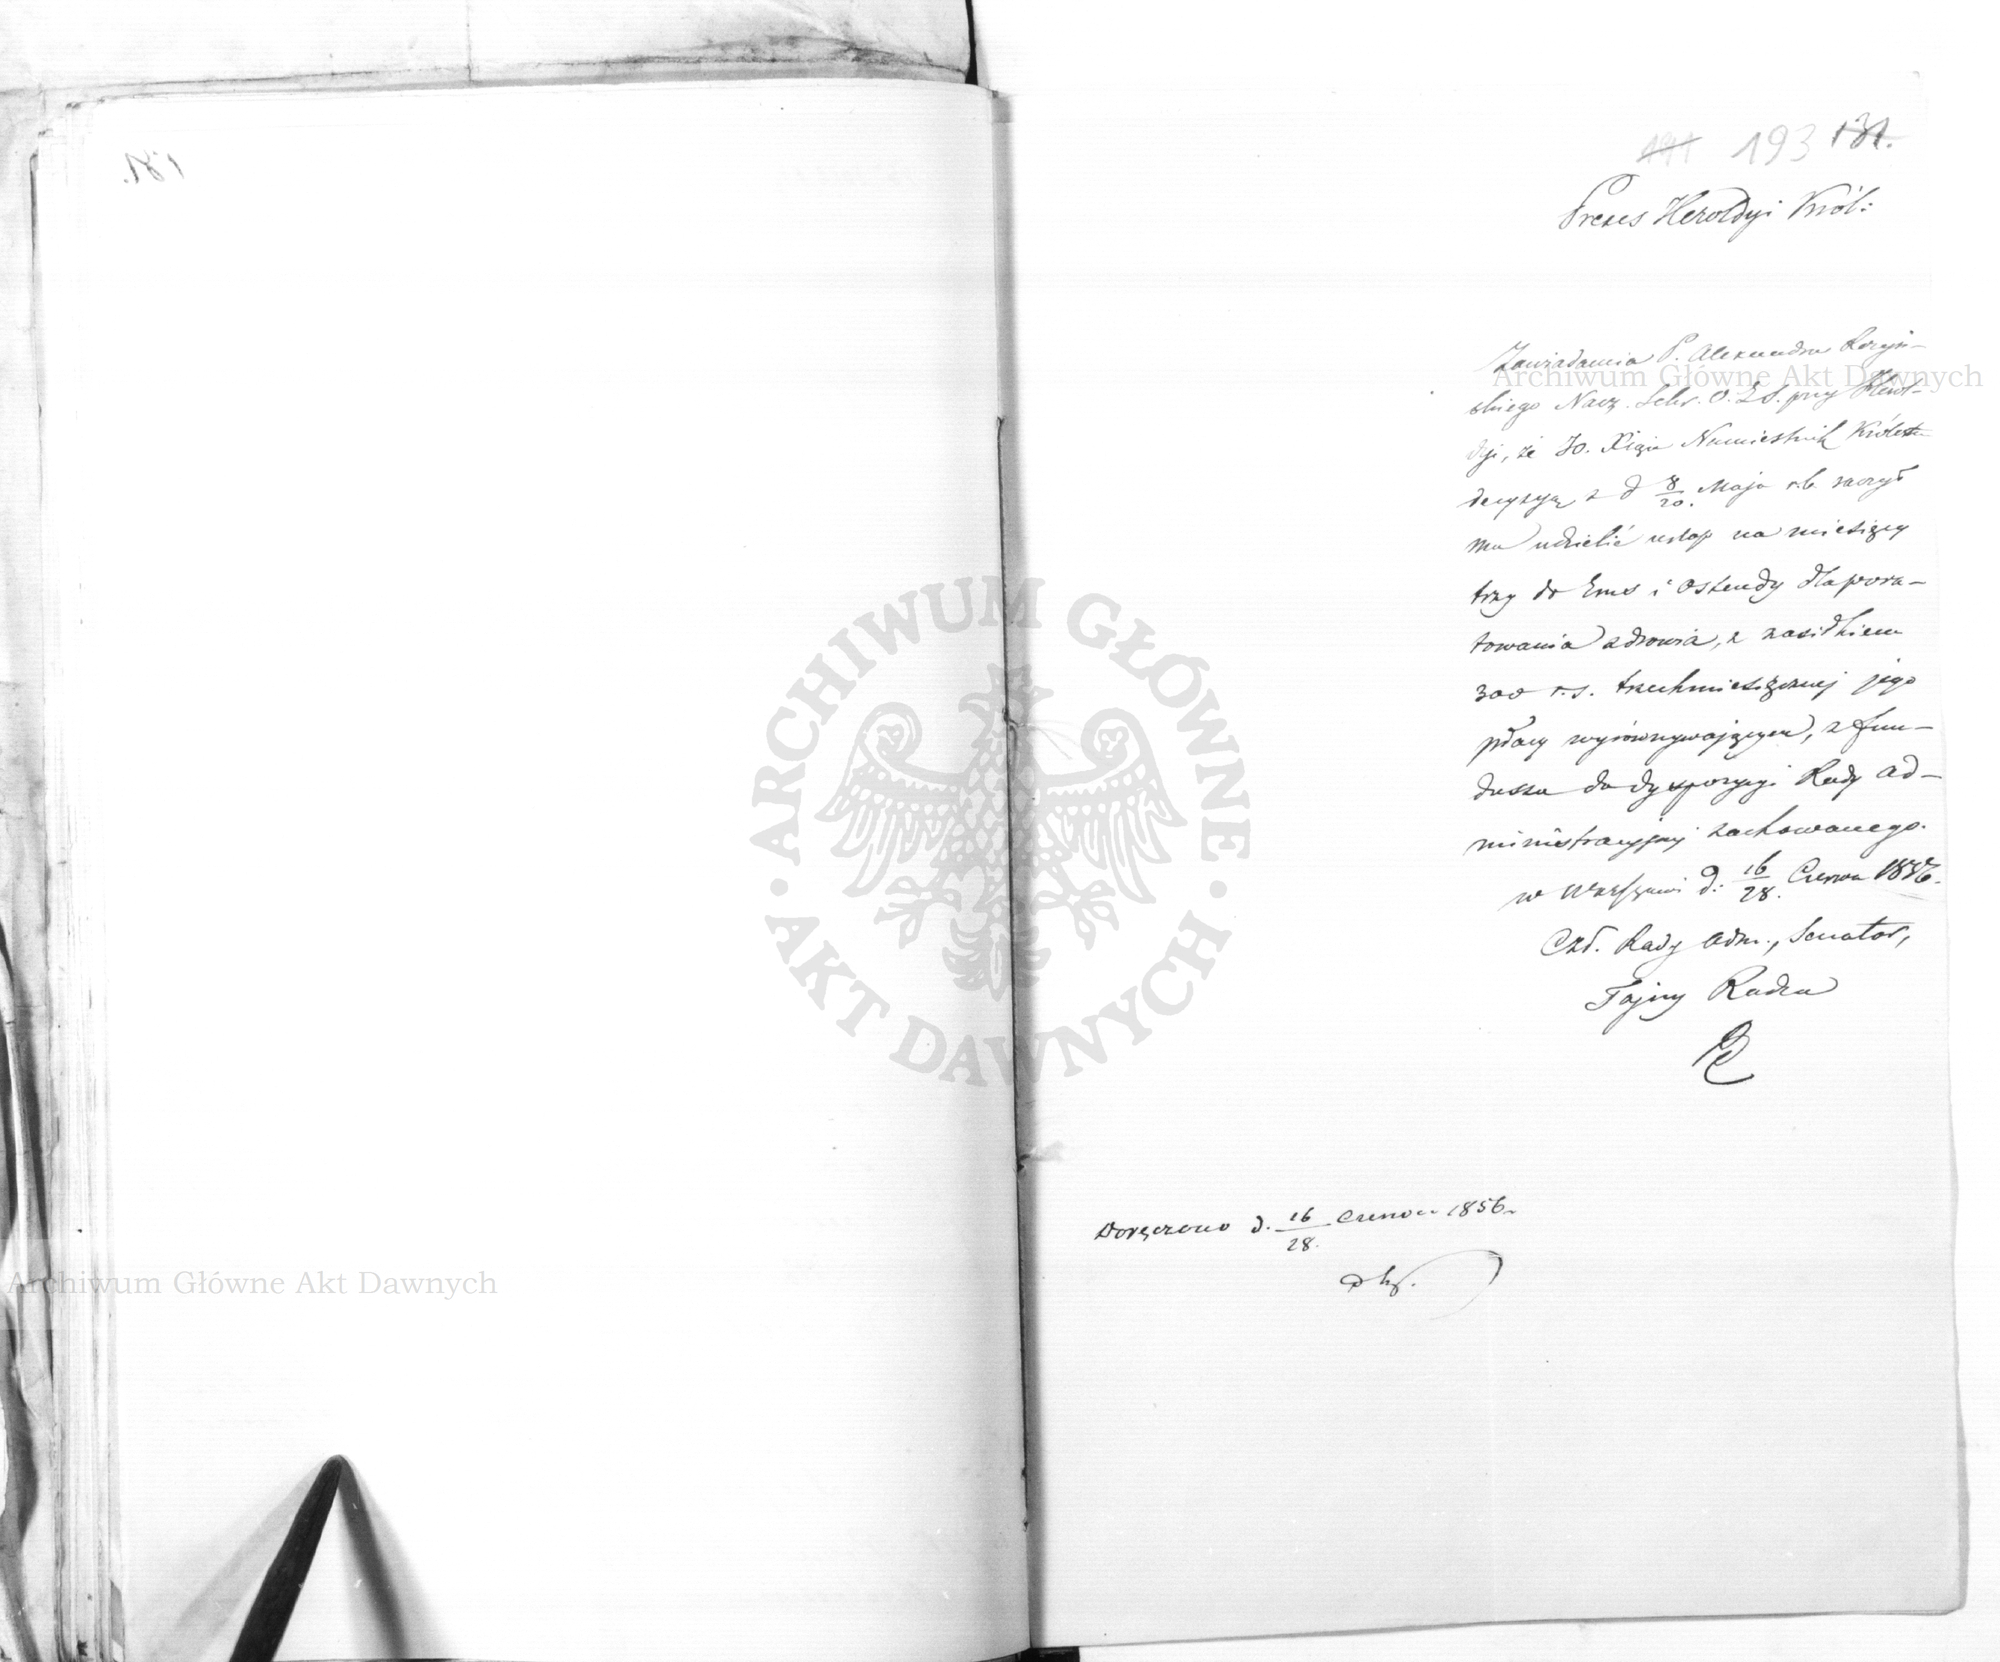 191 193 131.
Prezes Heroldyi Król:
Zawiadamia P. Alexandra
skiego Nacz. przy Herol-
dyi, że JO. Xiąże Namiestnik Królestwa
decyzyą z d 8/20. Maja r.b. raczył
mu udzielić urlop na miesięcy
trzy do Ems i Ostendy dla pora-
towania zdrowia, z zasiłkiem
300 r.s. trzechmiesięcznej jego
płacy wyrównywającym, z fun-
duszu do dyspozycyi Rady Ad-
ministracyjnej zachowanego.
w Warszawie d: 16/28. Czerwca 1856.
Czł. Rady Adm., Senator,
Tajny Radca
Doręczono d. 16/28. Czerwca 1856.
Archiwum Główne Akt Dawnych
Archiwum Główne Akt Dawnych
ARCHIWUM GŁÓWNE · AKT DAWNYCH ·